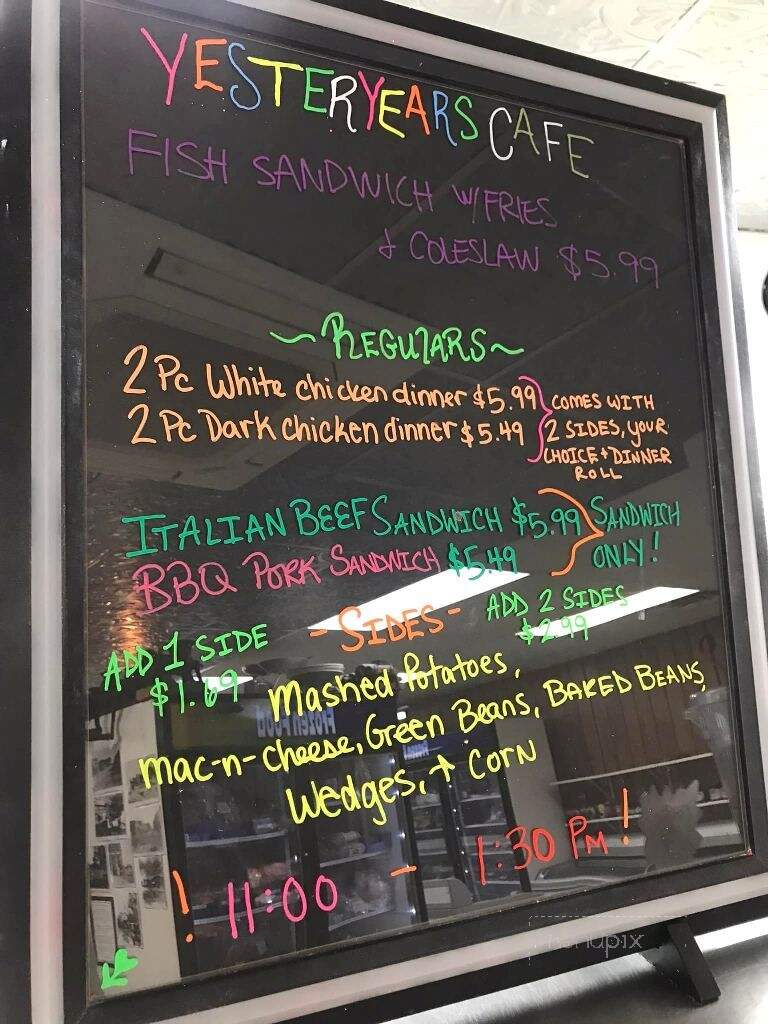 YESTERYEARS CAFE
FISH SANDWICH W/FRIES
& COLESLAW $5.99
~REGULARS~
2 Pc White chicken dinner $5.99
2 Pc Dark chicken dinner $5.49
COMES WITH
2 SIDES, YOUR
CHOICE + DINNER
ROLL
ITALIAN BEEF SANDWICH $5.99
BBQ PORK SANDWICH $5.49
SANDWICH
ONLY!
ADD 1 SIDE
$1.69
- SIDES -
ADD 2 SIDES
$2.99
Mashed Potatoes,
mac-n-cheese, Green Beans, BAKED BEANS,
Wedges, + CORN
! 11:00 - 1:30 PM!
Frozen Food
menupix